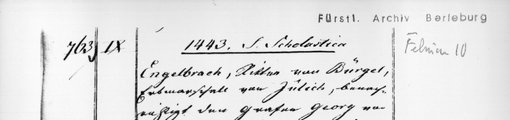 Fürstl. Archiv Berleburg
763 IX
1443. S. Scholastica
Februar 10
Engelbrech, Ritter von Bürgel,
Erbmarschall von Jülich, benach-
richtigt den Grafen Georg von